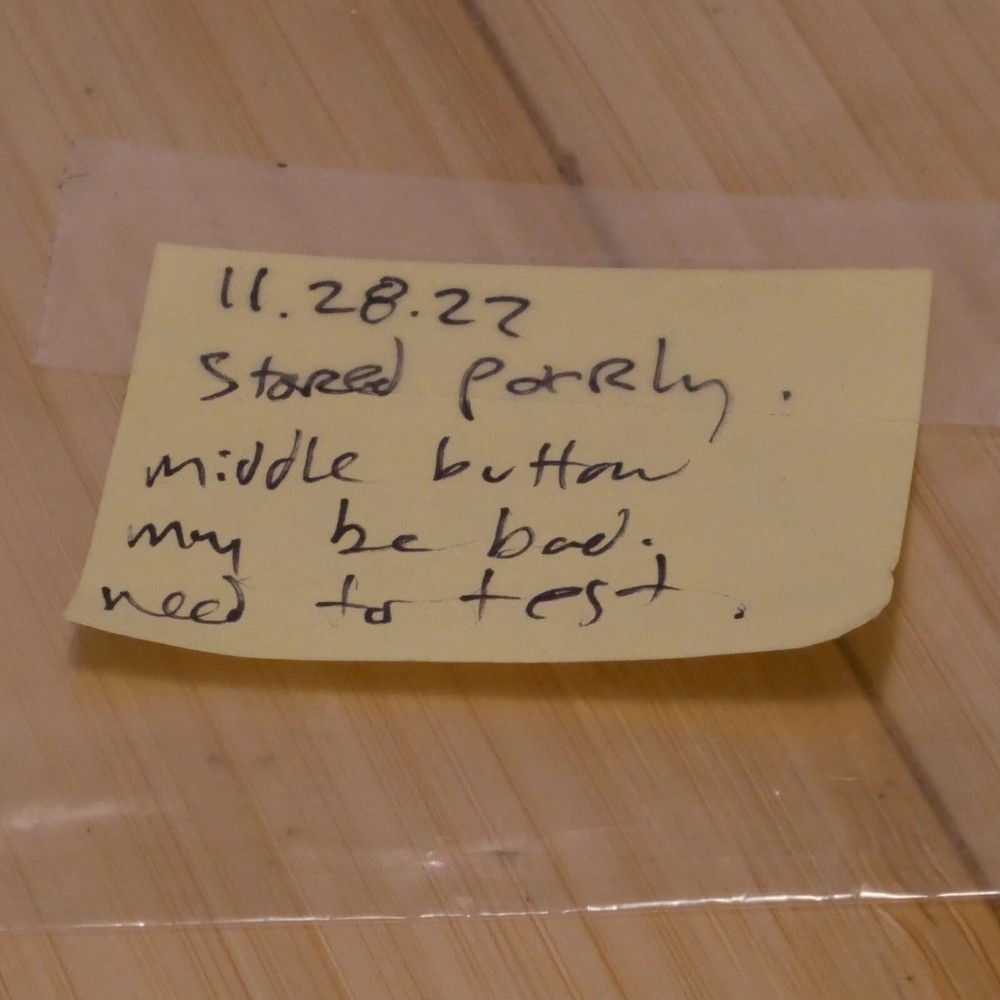 11.28.22
Stored poorly.
middle button
may be bad.
need to test.